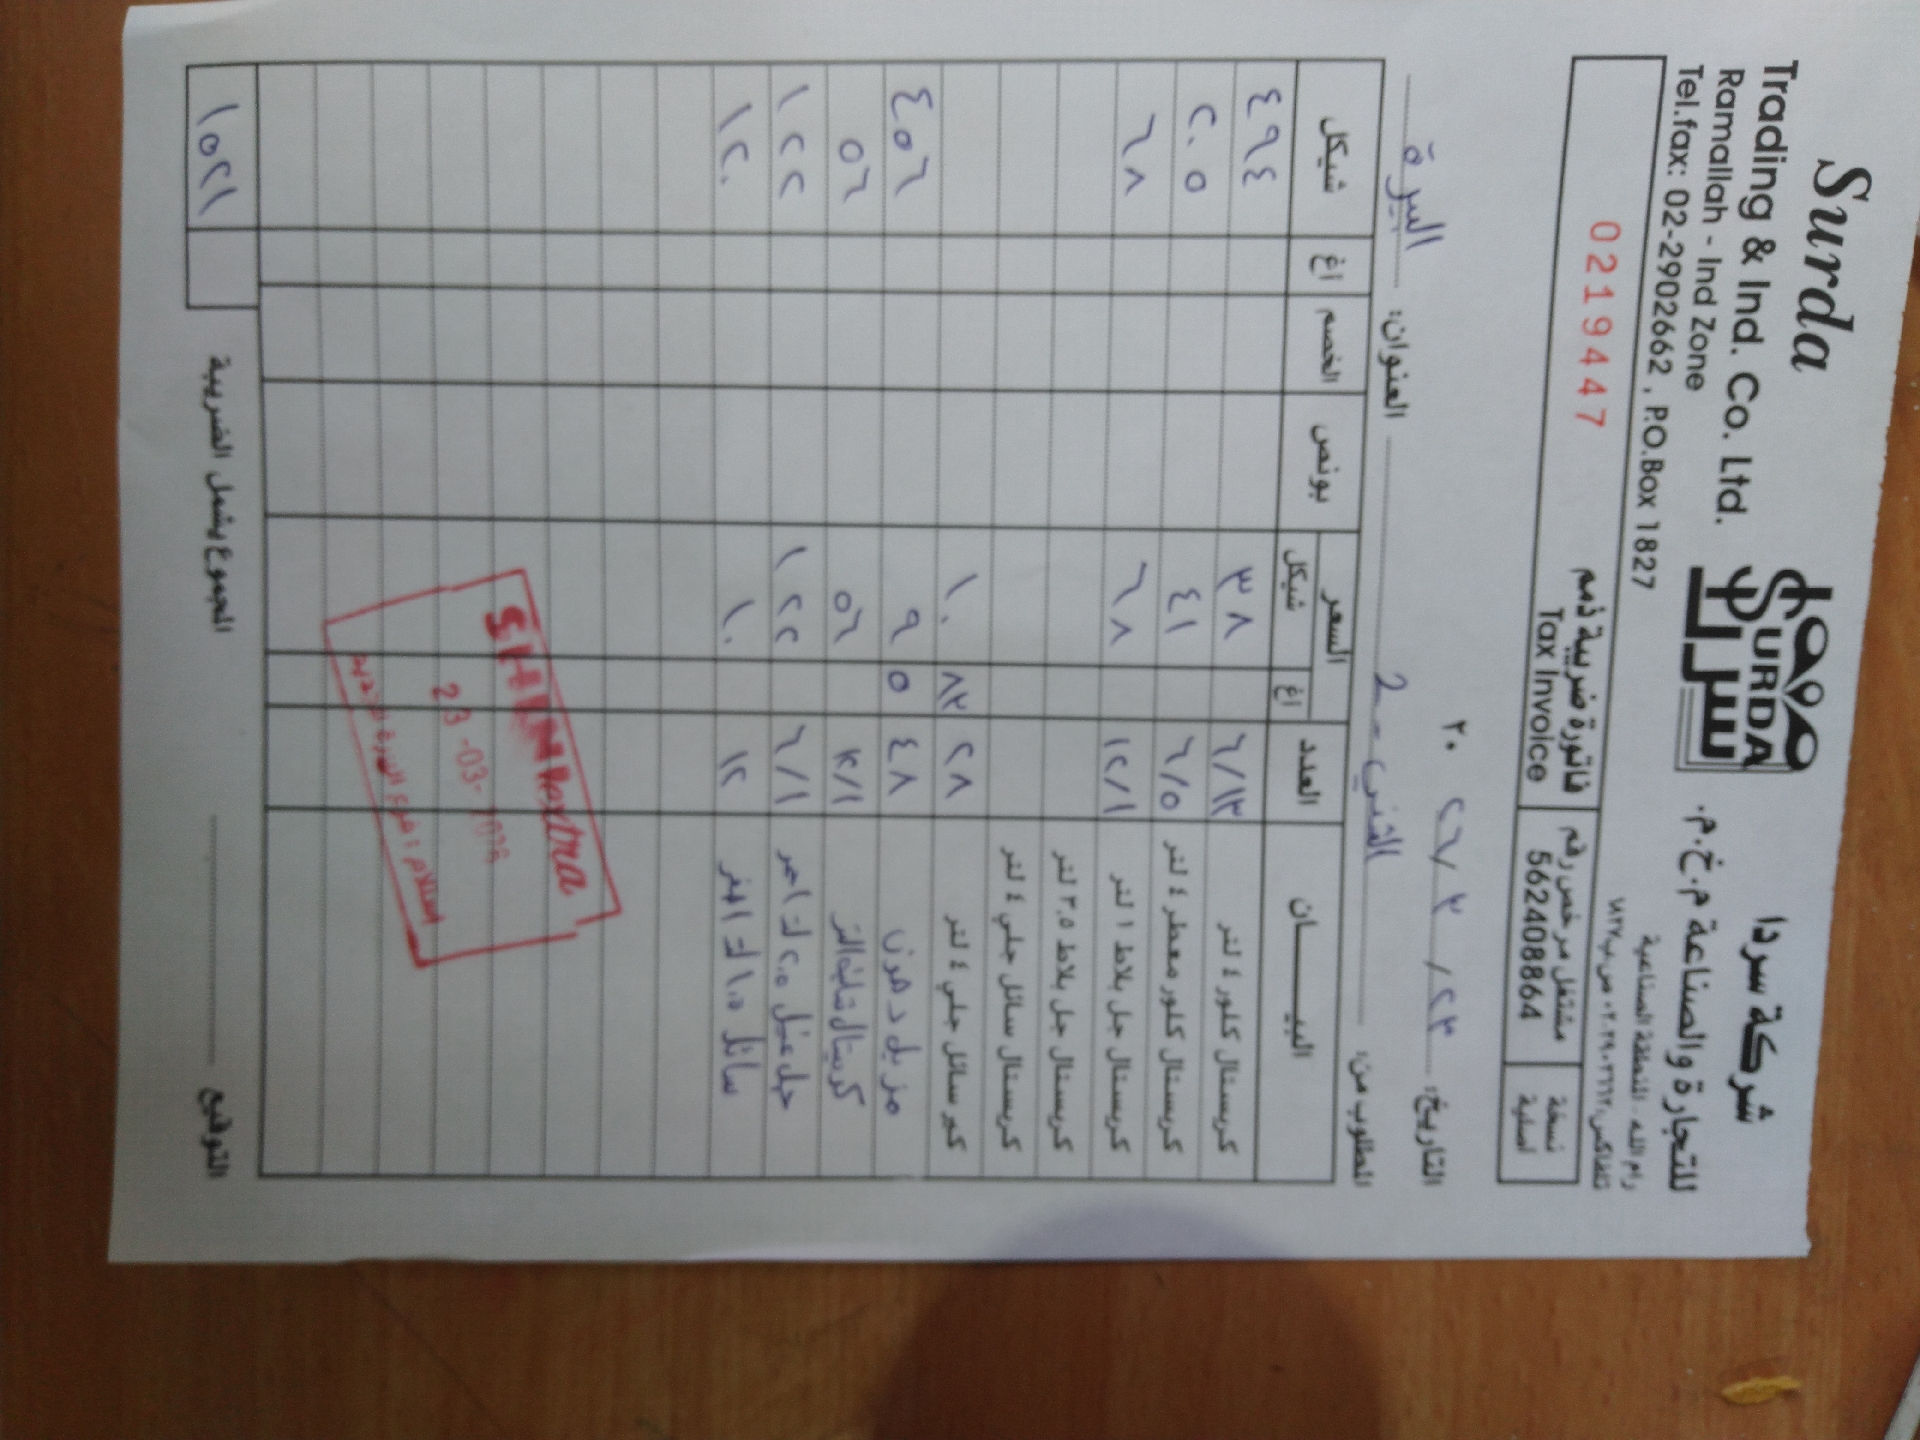 Surda
Trading & Ind. Co. Ltd.
Ramallah - Ind Zone
Tel.fax: 02-2902662 , P.O.Box 1827
SURDA
سردا
شركة سردا
للتجارة والصناعة م.خ.م.
رام الله - المنطقة الصناعية
تلفاكس: ٠٢٠٢٩٠٢٦٦٢ ص.ب ١٨٢٧
0219447
فاتورة ضريبية ذمم
Tax Invoice
مشتغل مرخص رقم
562408864
نسخة
أصلية
التاريخ: ٢٣ / ٣ / ٢٠٢٦
المطلوب من: الشني - 2 العنوان: البيرة
البيــــان العدد السعر بونص الخصم اغ شيكل
اغ شيكل
كريستال كلور ٤ لتر ٦/١٣ ٣٨ ٤٩٤
كريستال كلور معطر ٤ لتر ٦/٥ ٤١ ٢٠٥
كريستال جل بلاط ١ لتر ١٢/١ ٦٨ ٦٨
كريستال جل بلاط ٣.٥ لتر
كريستال سائل جلي ٤ لتر
كير سائل جلي ٤ لتر ٢٨ ٨٣ ١٠
مزيل دهون ٤٨ ٥ ٩ ٤٥٦
كريستال ١٢/١ ٥٦ ٥٦
جل غسيل ٢.٥ لتر احمر ٦/١ ١٢٢ ١٢٢
سائل ١.٥ لتر ١٢ ١٠ ١٢٠
SHINI extra
23 -03- 2026
استلام: فرع البيرة
التوقيع المجموع يشمل الضريبة ١٥٢١